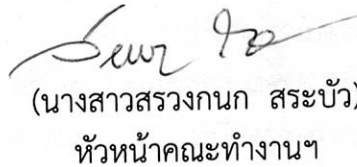 (นางสาวสรวงกนก สระบัว)
หัวหน้าคณะทำงานฯ